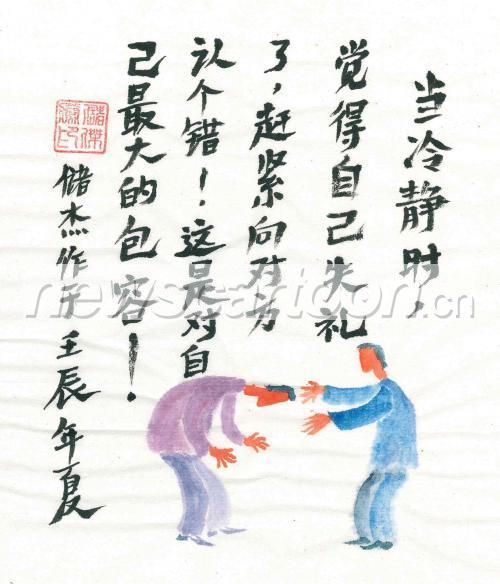 当冷静时，
觉得自己失礼
了，赶紧向对方
认个错！这是对自
己最大的包容！
储杰作于壬辰年夏
newscartoon.cn